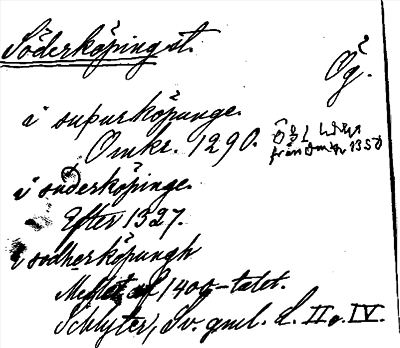 Söderköping st.
Ög.
i supurköpunge.
Omkr. 1290. ÖgL hdskr
från omkr 1350
i suderköpinge.
Efter 1327.
i sodherköpungh
Midten af 1400-talet.
Schlyter, Sv. gml. L. II o. IV.